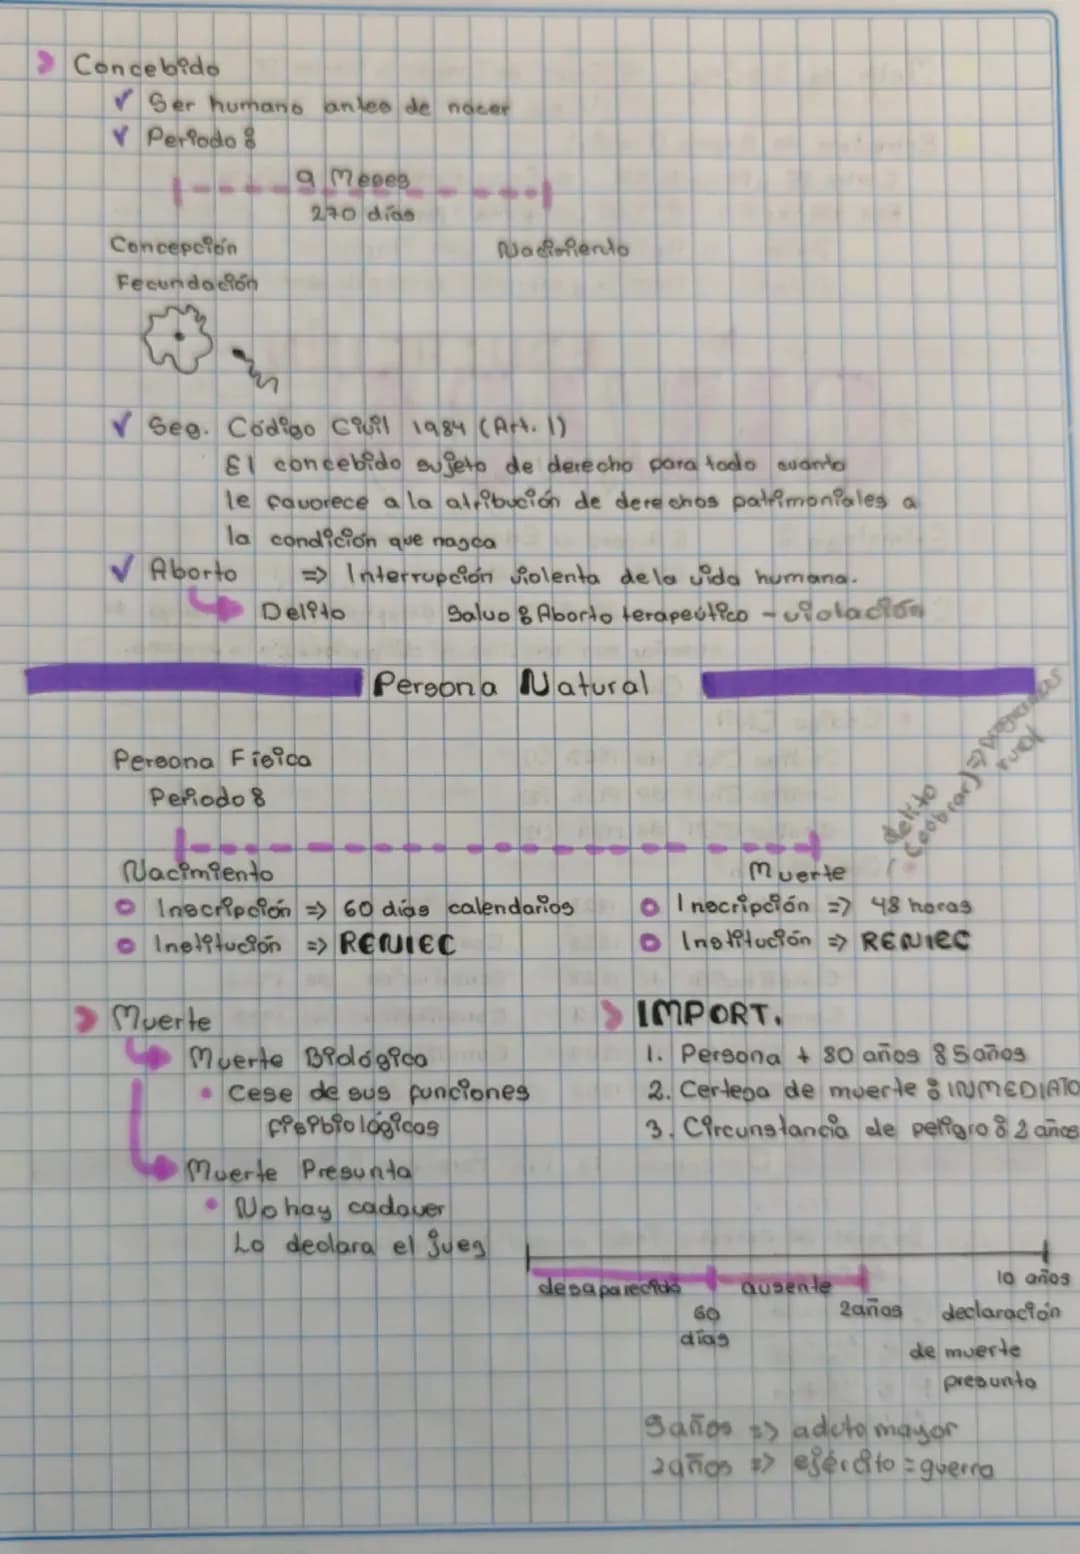 Concebido
Ser humano antes de nacer
Periodo:
9 Meses
270 días
Concepción Nacimiento
Fecundación
Seg. Código Civil 1984 (Art. 1)
El concebido sujeto de derecho para todo cuanto
le favorece a la atribución de derechos patrimoniales a
la condición que nazca
Aborto => Interrupción violenta de la vida humana.
Delito Salvo: Aborto terapeútico - violación
Persona Natural
Persona Física
Periodo:
delito
(cobrar) =>
rural
Nacimiento Muerte
Inscripción => 60 días calendarios Inscripción => 48 horas
Institución => RENIEC Institución => RENIEC
Muerte IMPORT.
Muerte Biológica 1. Persona + 80 años : 5 años
Cese de sus funciones 2. Certeza de muerte : INMEDIATO
fisiobiológicas 3. Circunstancia de peligro : 2 años
Muerte Presunta
No hay cadaver
Lo declara el juez
desaparecido ausente 10 años
60 2 años declaración
días de muerte
presunta
5 años => adulto mayor
2 años => ejército = guerra